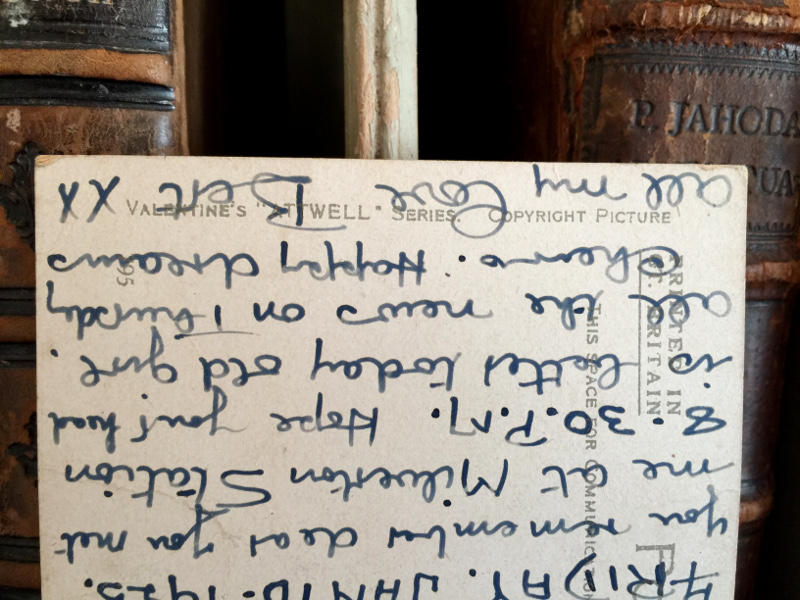 P. JAHODA
VALENTINE'S "ATTWELL" SERIES. COPYRIGHT PICTURE
PRINTED IN
GT. BRITAIN
THIS SPACE FOR COMMUNICATION
95
FRIDAY. JAN 16. 1925.
you remember dear you met
me at Milverton Station
8.30.P.M. Hope your head
is better today old girl.
all the news on Thursday
Cheero. Happy dreams
all my love Bert XX